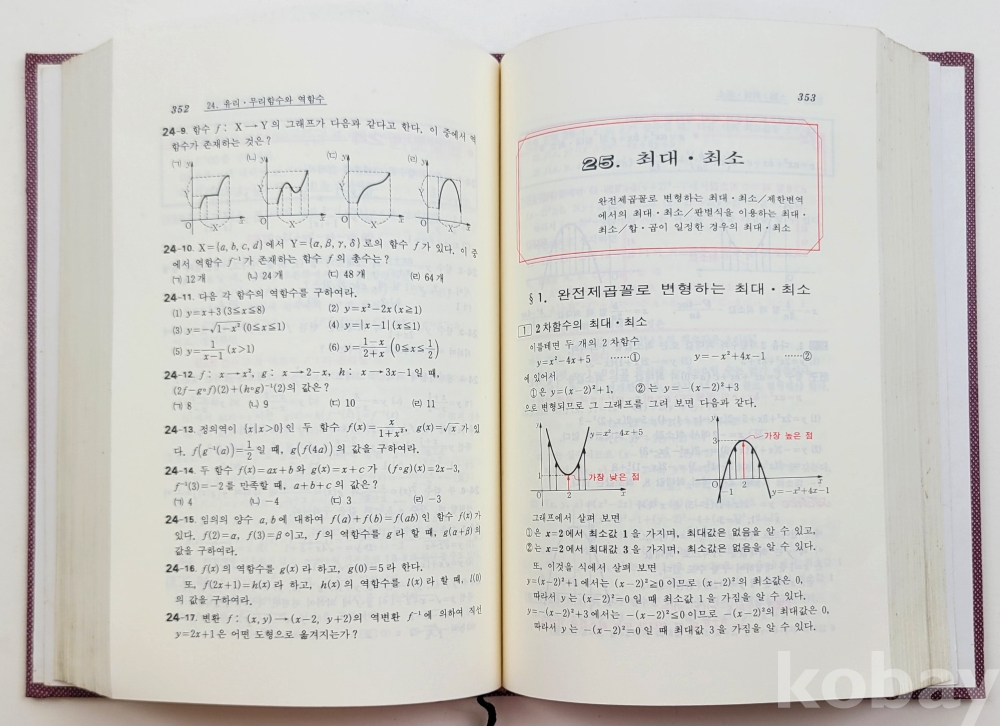 352 24. 유리·무리함수와 역함수
24-9. 함수 f : X→Y의 그래프가 다음과 같다고 한다. 이 중에서 역
함수가 존재하는 것은?
㈀ y ㈁ y ㈂ y ㈃ y
Y Y Y Y
O X x O X x O X x O X x
24-10. X={a, b, c, d}에서 Y={α, β, γ, δ}로의 함수 f가 있다. 이 중
에서 역함수 f⁻¹가 존재하는 함수 f의 총수는?
㈀ 12개 ㈁ 24개 ㈂ 48개 ㈃ 64개
24-11. 다음 각 함수의 역함수를 구하여라.
(1) y=x+3 (3≤x≤8) (2) y=x²-2x (x≥1)
(3) y=-√(1-x²) (0≤x≤1) (4) y=|x-1| (x≤1)
(5) y=1/(x-1) (x>1) (6) y=(1-x)/(2+x) (0≤x≤1/2)
24-12. f : x→x², g : x→2-x, h : x→3x-1일 때,
(2f-g∘f)(2)+(h∘g)⁻¹(2)의 값은?
㈀ 8 ㈁ 9 ㈂ 10 ㈃ 11
24-13. 정의역이 {x|x>0}인 두 함수 f(x)=x/(1+x²), g(x)=√x가 있
다. f(g⁻¹(a))=1/2일 때, g(f(4a))의 값을 구하여라.
24-14. 두 함수 f(x)=ax+b와 g(x)=x+c가 (f∘g)(x)=2x-3,
f⁻¹(3)=-2를 만족할 때, a+b+c의 값은?
㈀ 4 ㈁ -4 ㈂ 3 ㈃ -3
24-15. 임의의 양수 a, b에 대하여 f(a)+f(b)=f(ab)인 함수 f(x)가
있다. f(2)=α, f(3)=β이고, f의 역함수를 g라 할 때, g(α+β)의
값을 구하여라.
24-16. f(x)의 역함수를 g(x)라 하고, g(0)=5라 한다.
또, f(2x+1)=h(x)라 하고, h(x)의 역함수를 l(x)라 할 때, l(0)
의 값을 구하여라.
24-17. 변환 f : (x, y)→(x-2, y+2)의 역변환 f⁻¹에 의하여 직선
y=2x+1은 어떤 도형으로 옮겨지는가?
353
25. 최대·최소
완전제곱꼴로 변형하는 최대·최소/제한변역
에서의 최대·최소/판별식을 이용하는 최대·
최소/합·곱이 일정한 경우의 최대·최소
§1. 완전제곱꼴로 변형하는 최대·최소
1 2차함수의 최대·최소
이를테면 두 개의 2차함수
y=x²-4x+5 ……① y=-x²+4x-1 ……②
에 있어서
①은 y=(x-2)²+1, ②는 y=-(x-2)²+3
으로 변형되므로 그 그래프를 그려 보면 다음과 같다.
y y=x²-4x+5
1 가장 낮은 점
O 2 x
y 가장 높은 점
3
O 1 2 x
y=-x²+4x-1
그래프에서 살펴 보면
①은 x=2에서 최소값 1을 가지며, 최대값은 없음을 알 수 있고,
②는 x=2에서 최대값 3을 가지며, 최소값은 없음을 알 수 있다.
또, 이것을 식에서 살펴 보면
y=(x-2)²+1에서는 (x-2)²≥0이므로 (x-2)²의 최소값은 0,
따라서 y는 (x-2)²=0일 때 최소값 1을 가짐을 알 수 있다.
y=-(x-2)²+3에서는 -(x-2)²≤0이므로 -(x-2)²의 최대값은 0,
따라서 y는 -(x-2)²=0일 때 최대값 3을 가짐을 알 수 있다.
kobay